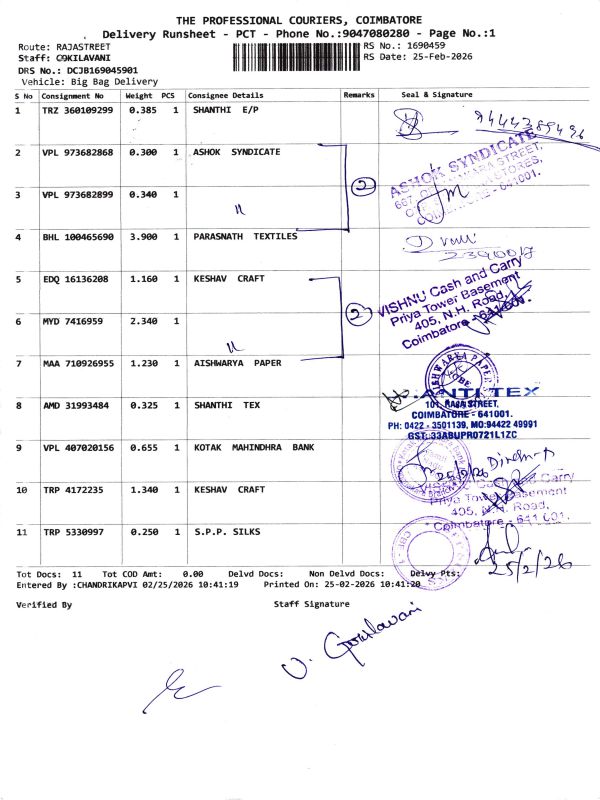 THE PROFESSIONAL COURIERS, COIMBATORE
Delivery Runsheet - PCT - Phone No.:9047080280 - Page No.:1
Route: RAJASTREET
RS No.: 1690459
Staff: COKILAVANI
RS Date: 25-Feb-2026
DRS No.: DCJB169045901
Vehicle: Big Bag Delivery
S No Consignment No Weight PCS Consignee Details Remarks Seal & Signature
1 TRZ 360109299 0.385 1 SHANTHI E/P
2 VPL 973682868 0.300 1 ASHOK SYNDICATE
ASHOK SYNDICATE
3 VPL 973682899 0.340 1 〃 2
COIMBATORE - 641001.
4 BHL 100465690 3.900 1 PARASNATH TEXTILES
5 EDQ 16136208 1.160 1 KESHAV CRAFT
VISHNU Cash and Carry
Priya Tower Basement
405, N.H. Road,
Coimbatore - 641 001.
6 MYD 7416959 2.340 1 〃 2
7 MAA 710926955 1.230 1 AISHWARYA PAPER
AISHWARYA PAPER
8 AMD 31993484 0.325 1 SHANTHI TEX
SHANTI TEX
101, RAJA STREET,
COIMBATORE - 641001.
PH: 0422 - 3501139, MO:94422 49991
GST: 33ABUPR0721L1ZC
9 VPL 407020156 0.655 1 KOTAK MAHINDHRA BANK
25/2/26
10 TRP 4172235 1.340 1 KESHAV CRAFT
Cash and Carry
Priya Tower Basement
405, N.H. Road,
Coimbatore - 641 001.
11 TRP 5330997 0.250 1 S.P.P. SILKS
25/2/26
Tot Docs: 11 Tot COD Amt: 0.00 Delvd Docs: Non Delvd Docs: Delvy Pts:
Entered By :CHANDRIKAPVI 02/25/2026 10:41:19 Printed On: 25-02-2026 10:41:20
Verified By Staff Signature
V. Gokilavani